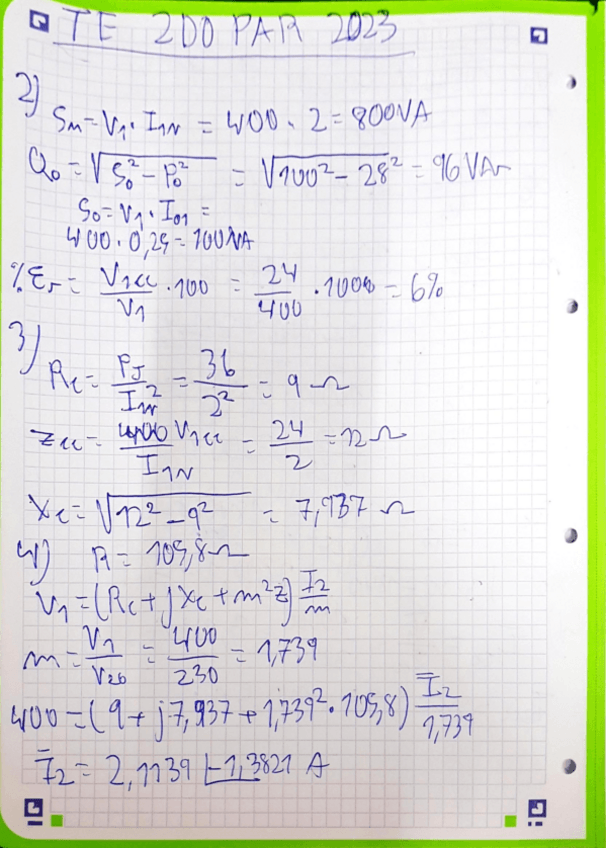 TE 2DO PAR 2023
2)
Sn = V₁ · I₁N = 400 · 2 = 800VA
Q₀ = √(S₀² - P₀²) = √(100² - 28²) = 96 VAr
S₀ = V₁ · I₀₁ =
400 · 0,25 = 100VA
%Er = V₁cc / V₁ · 100 = 24 / 400 · 100 = 6%
3)
Rc = PJ / I₁N² = 36 / 2² = 9 Ω
Zcc = V₁cc / I₁N = 24 / 2 = 12 Ω
Xc = √(12² - 9²) = 7,937 Ω
4) R = 105,8 Ω
V₁ = (Rc + jXc + m²z) I₂ / m
m = V₁ / V₂₀ = 400 / 230 = 1,739
400 = (9 + j7,937 + 1,739² · 105,8) I̅₂ / 1,739
I̅₂ = 2,1139 ∠-1,3821 A